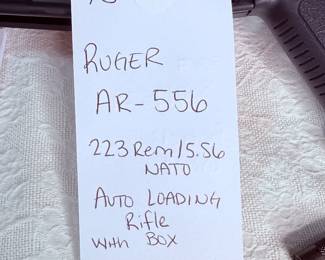 RUGER
AR-556
223 Rem/5.56
NATO
AUTO LOADING
Rifle
With BOX